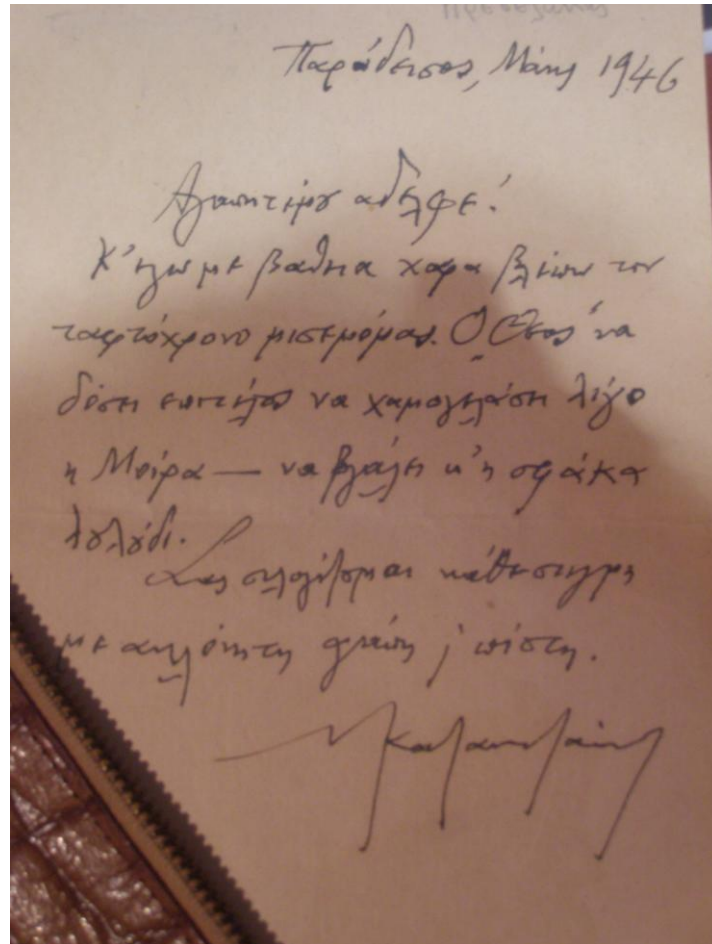 Παράδεισος, Μάης 1946
Αγαπητέ μου αδελφέ!
Κ' εγώ με βαθειά χαρά βλέπω τον
ταφτόχρονο μισεμό μας. Ο Θεός να
δόση επιτέλους να χαμογελάση λίγο
η Μοίρα — να βγάλει κ' η σφάκα
λουλούδι.
Σας συλλογίζομαι κάθε στιγμή
με αγάπη πίστη.
Καζαντζάκης